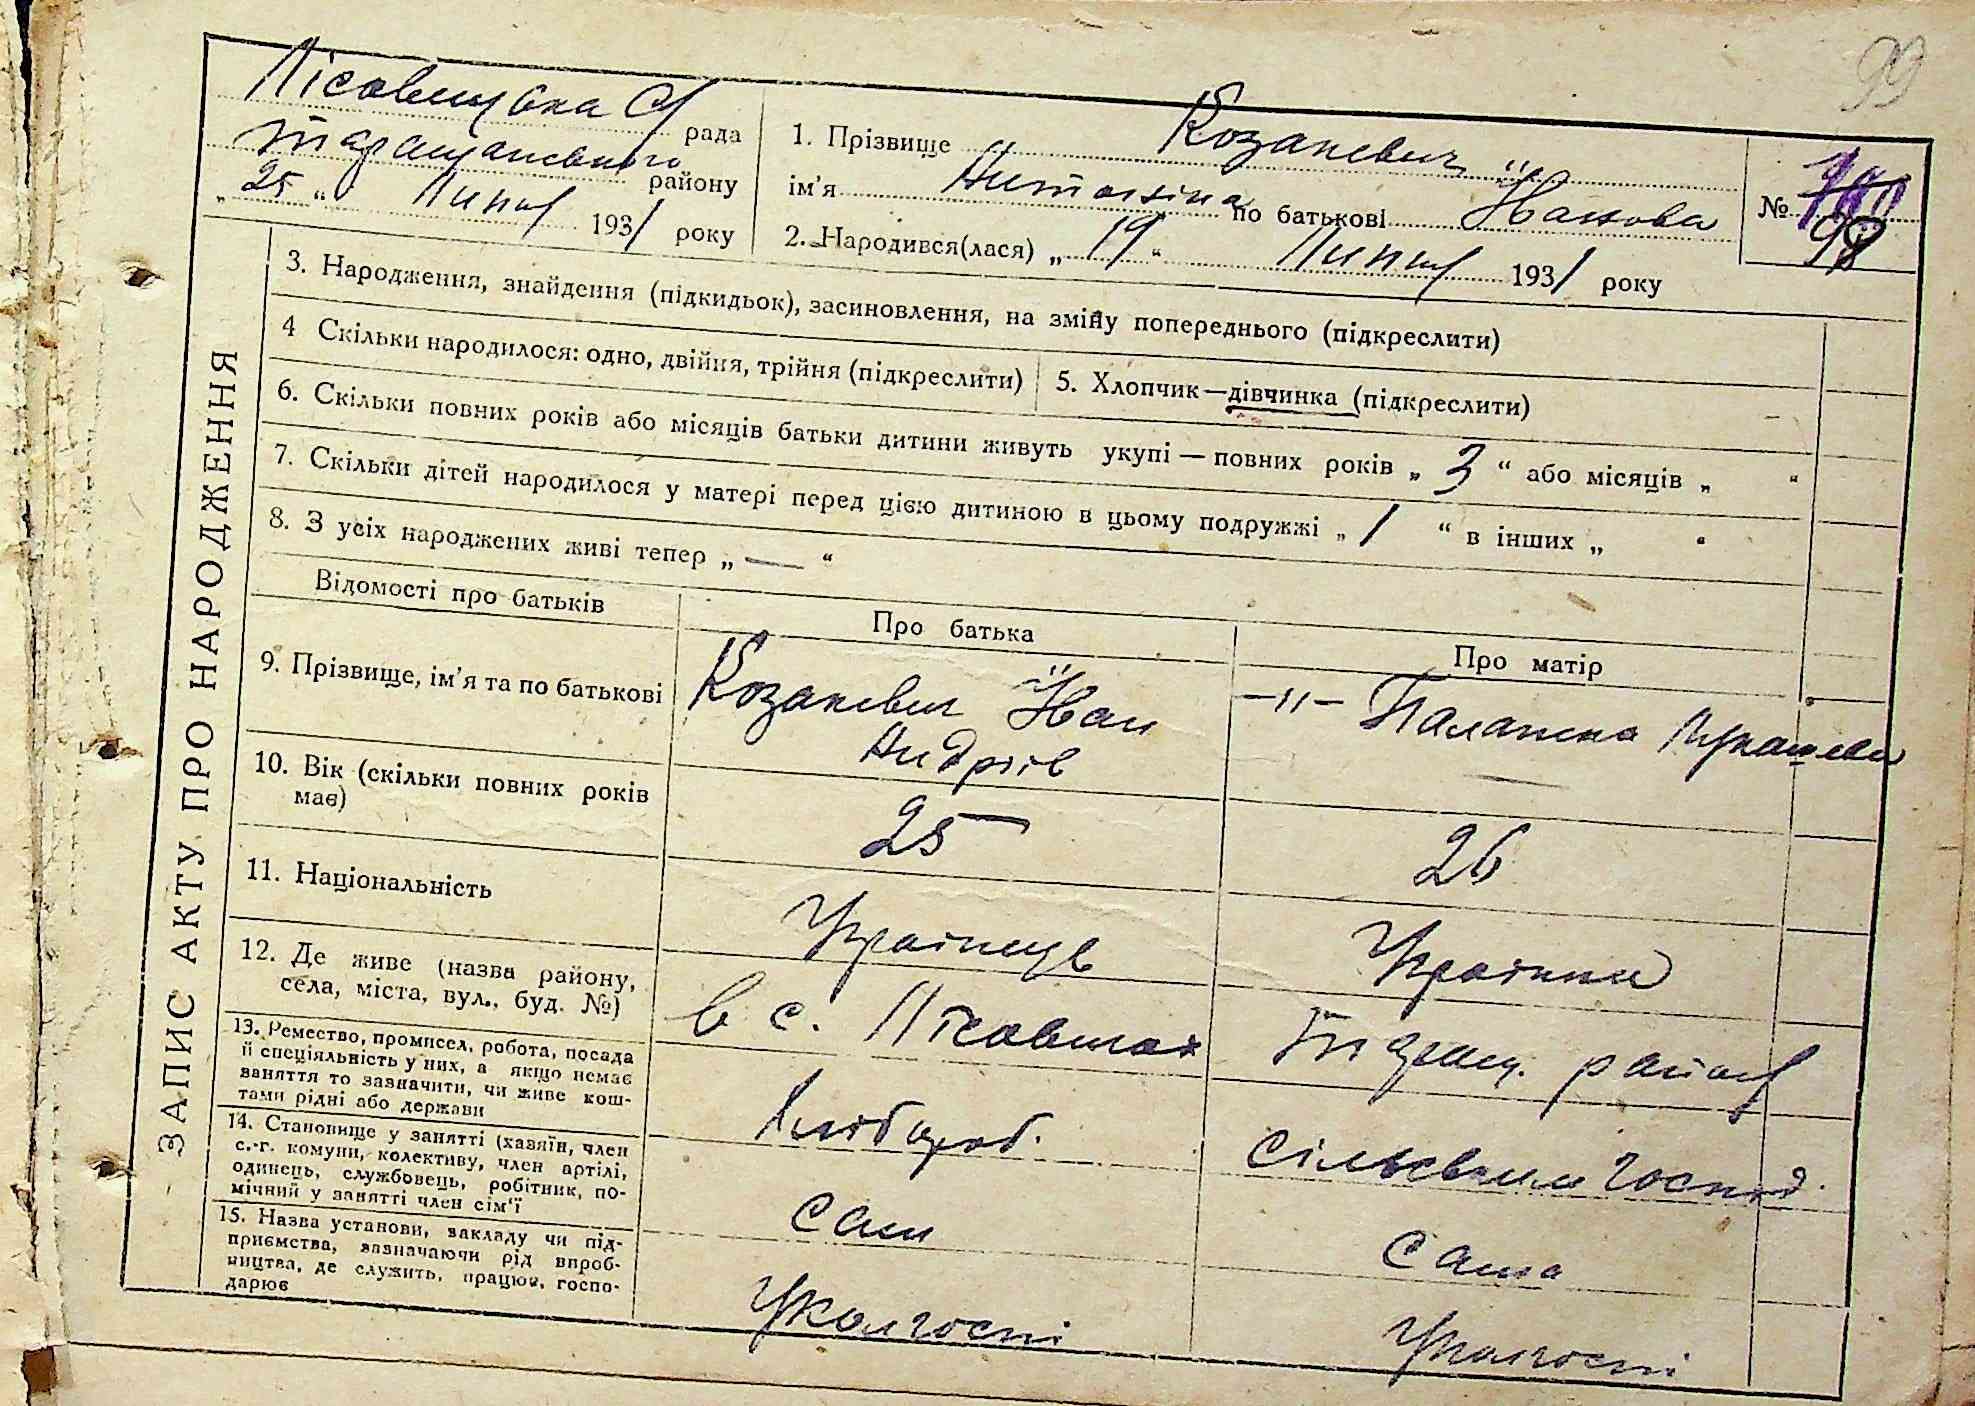 99
Лісовицька С/ рада
Таращанського району
„ 25 “ Липня 1931 року
1. Прізвище Козакевич
ім'я Антоніна по батькові Йванова
2. Народився(лася) „ 19 “ Липня 1931 року
№ 98
ЗАПИС АКТУ ПРО НАРОДЖЕННЯ
3. Народження, знайдення (підкидьок), засиновлення, на зміну попереднього (підкреслити)
4 Скільки народилося: одно, двійня, трійня (підкреслити)
5. Хлопчик—дівчинка (підкреслити)
6. Скільки повних років або місяців батьки дитини живуть укупі — повних років „ 3 “ або місяців „ “
7. Скільки дітей народилося у матері перед цією дитиною в цьому подружжі „ 1 “ в інших „ “
8. З усіх народжених живі тепер „ — “
Відомості про батьків
Про батька
Про матір
9. Прізвище, ім'я та по батькові
Козакевич Йван
Андріїв
—"— Палажка
10. Вік (скільки повних років
має)
25
26
11. Національність
Українець
Українка
12. Де живе (назва району,
села, міста, вул., буд. №)
в с. Лісовичах
Таращ. району
13. Ремество, промисел, робота, посада
й спеціяльність у них, а якщо немає
заняття то зазначити, чи живе кош-
тами рідні або держави
Хлібороб.
сільським господ.
14. Становище у занятті (хазяїн, член
с.-г. комуни, колективу, член артілі,
одинець, службовець, робітник, по-
мічний у занятті член сім'ї
сам
сама
15. Назва установи, закладу чи під-
приємства, зазначаючи рід вироб-
ництва, де служить, працює, госпо-
дарює
У колгоспі
У колгоспі